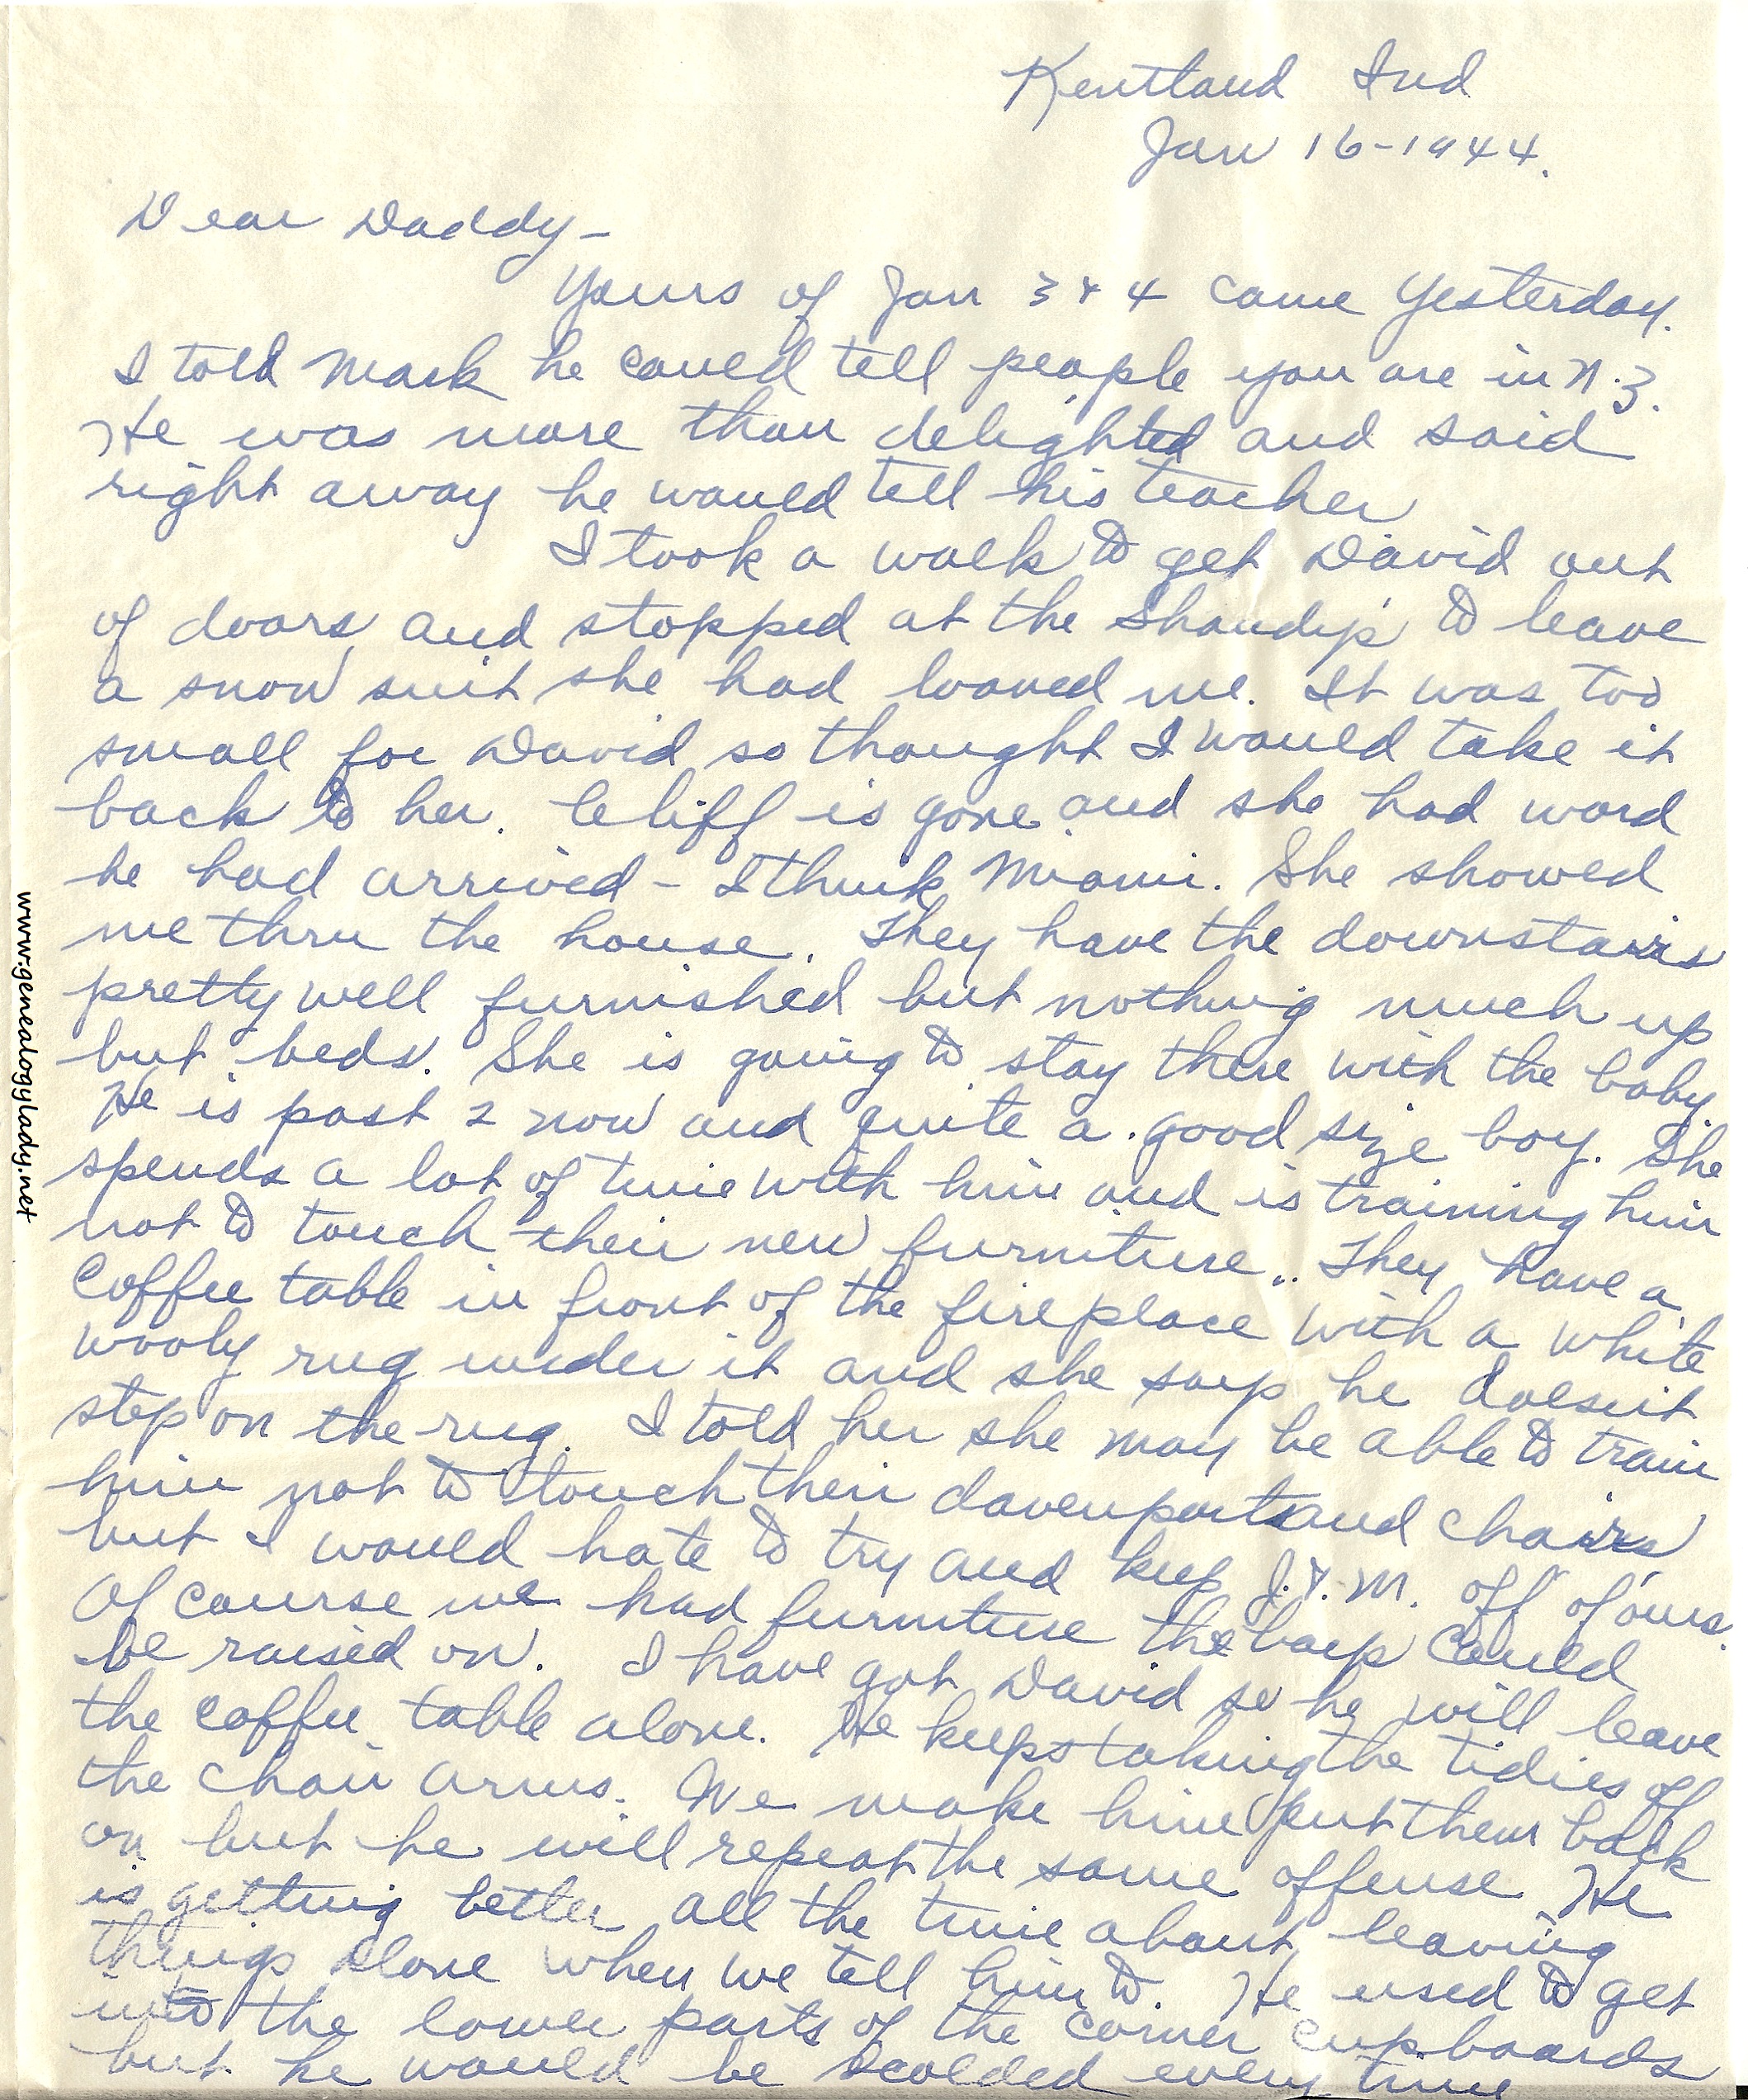 Kentland Ind
Jan 16-1944.
Dear Daddy-
Yours of Jan 3 & 4 came yesterday.
I told Mark he could tell people you are in N.Z.
He was more than delighted and said
right away he would tell his teacher
I took a walk to get David out
of doors and stopped at the to leave
a snow suit she had loaned me. It was too
small for David so thought I would take it
back to her. Cliff is gone and she had word
he had arrived - I think Miami. She showed
me thru the house. They have the downstairs
pretty well furnished but nothing much up
but beds. She is going to stay there with the baby.
He is past 2 now and quite a good size boy. She
spends a lot of time with him and is training him
not to touch their new furniture. They have a
coffee table in front of the fireplace with a white
wooly rug under it and she says he doesn't
step on the rug. I told her she may be able to train
him not to touch their davenport and chairs
but I would hate to try and keep J. & M. off of ours.
Of course we had furniture the boys could
be raised on. I have got David so he will leave
the coffee table alone. He keeps taking the tidies off
the chair arms. We make him put them back
on but he will repeat the same offense. He
is getting better all the time about leaving
things alone when we tell him to. He used to get
into the lower parts of the corner cupboards
but he would be scolded every time
www.genealogylady.net